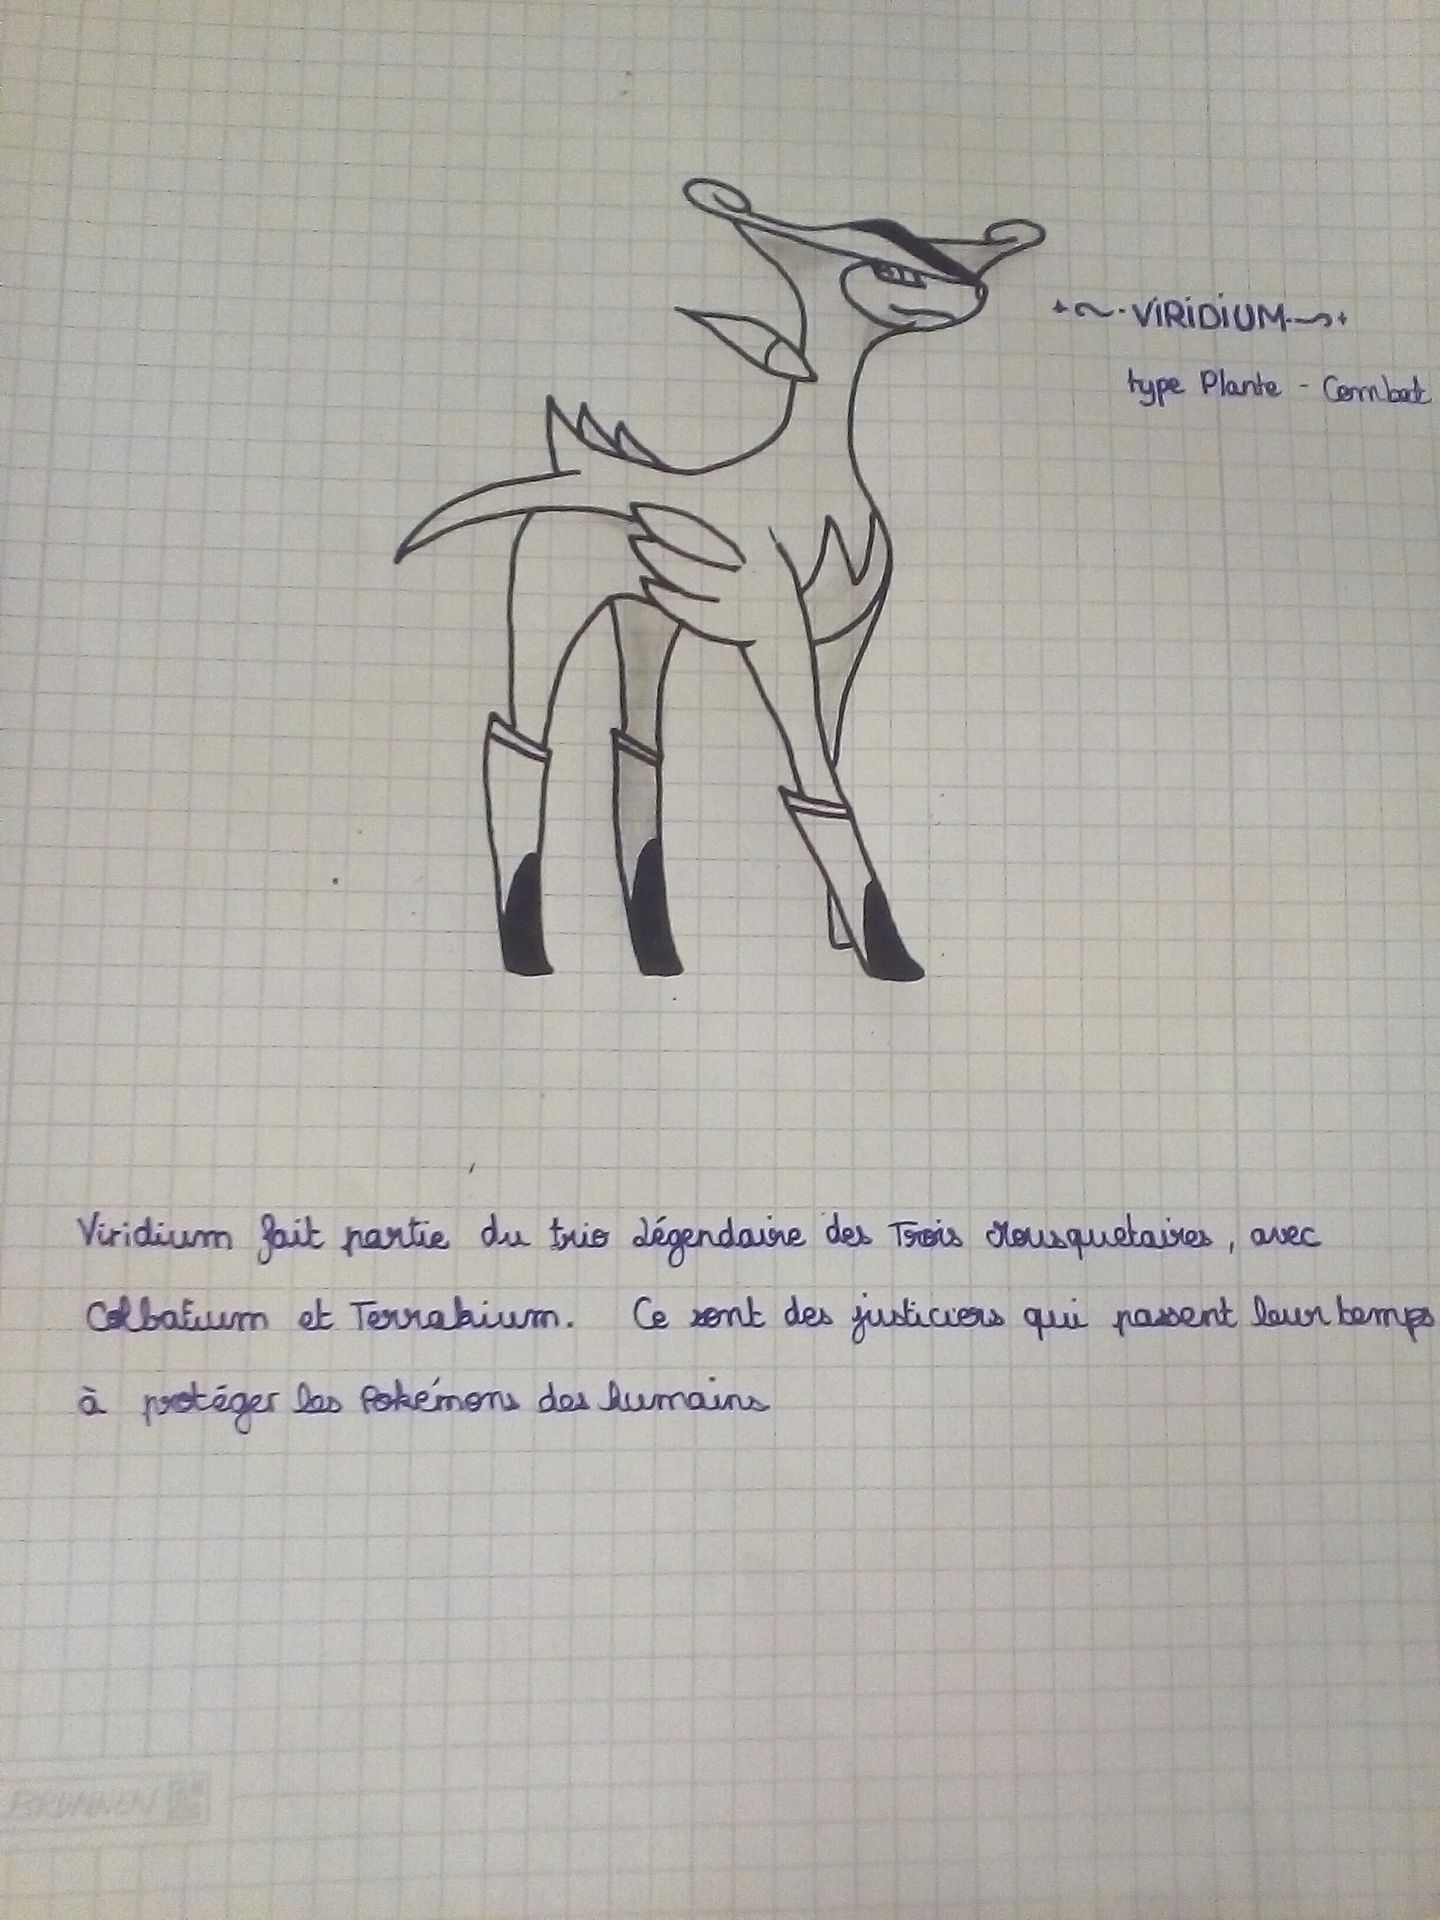 +~·VIRIDIUM·~+
type Plante - Combat
Viridium fait partie du trio légendaire des Trois Mousquetaires, avec
Cobaltium et Terrakium. Ce sont des justiciers qui passent leur temps
à protéger les Pokémons des humains
BRUNNEN